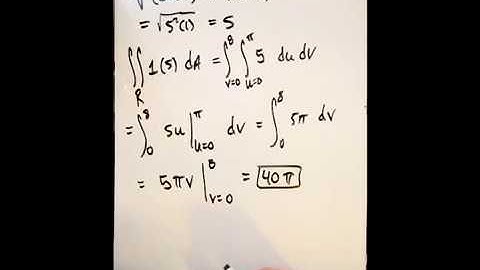 = √5²(1) = 5
∬_R 1(5) dA = ∫_{v=0}^{8} ∫_{u=0}^{π} 5 du dv
= ∫_0^8 5u |_{u=0}^{π} dv = ∫_0^8 5π dv
= 5πv |_{v=0}^{8} = 40π